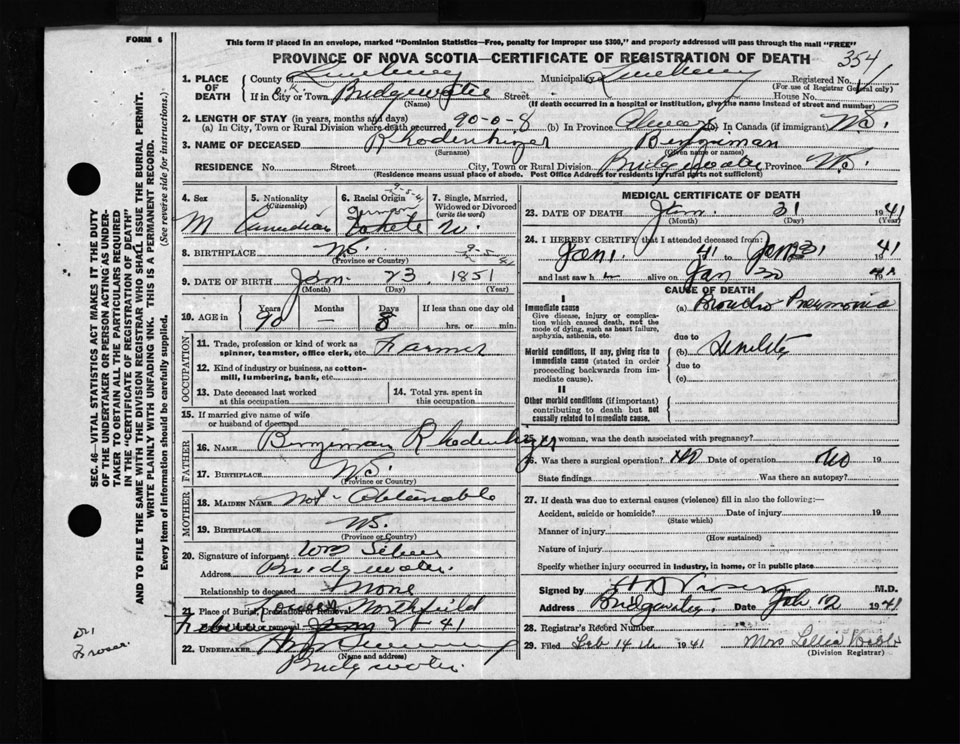 FORM 6
This form if placed in an envelope, marked "Dominion Statistics—Free, penalty for improper use $300," and properly addressed will pass through the mail "FREE"
PROVINCE OF NOVA SCOTIA—CERTIFICATE OF REGISTRATION OF DEATH 354
1. PLACE OF DEATH County of Lunenburg Municipality Lunenburg Registered No.
(For use of Registrar General only)
If in City or Town Bridgewater Street House No.
(Name) (If death occurred in a hospital or institution, give the name instead of street and number)
2. LENGTH OF STAY (in years, months and days)
(a) In City, Town or Rural Division where death occurred 90-0-8 (b) In Province Always (c) In Canada (if immigrant) N.S.
3. NAME OF DECEASED Rhodenhizer Benjiman
(Surname) (Given name or names)
RESIDENCE No. Street City, Town or Rural Division Bridgewater Province N.S.
(Residence means usual place of abode. Post Office Address for residents in rural parts not sufficient)
4. Sex 5. Nationality (Citizenship) 6. Racial Origin 7. Single, Married, Widowed or Divorced (write the word)
M Canadian W.
8. BIRTHPLACE N.S.
(Province or Country)
9. DATE OF BIRTH Jan 23, 1851
(Month) (Day) (Year)
10. AGE in Years Months Days If less than one day old
90 — 8 hrs. or min.
OCCUPATION
11. Trade, profession or kind of work as spinner, teamster, office clerk, etc. Farmer
12. Kind of industry or business, as cotton-mill, lumbering, bank, etc.
13. Date deceased last worked at this occupation 14. Total yrs. spent in this occupation
15. If married give name of wife or husband of deceased
FATHER
16. NAME Benjiman Rhodenhizer
17. BIRTHPLACE N.S.
(Province or Country)
MOTHER
18. MAIDEN NAME Not Obtainable
19. BIRTHPLACE N.S.
(Province or Country)
20. Signature of informant Wm Silver
Address Bridgewater
Relationship to deceased None
21. Place of Burial, Cremation or Removal Lower Northfield
Date of burial or removal 2 1941
22. UNDERTAKER
(Name and address)
Bridgewater
MEDICAL CERTIFICATE OF DEATH
23. DATE OF DEATH Jan. 31 1941
(Month) (Day) (Year)
24. I HEREBY CERTIFY that I attended deceased from:
Jan 1 41 to Jan 31 1941
and last saw h alive on Jan 30 1941
CAUSE OF DEATH
I
Immediate cause
Give disease, injury or complication which caused death, not the mode of dying, such as heart failure, asphyxia, asthenia, etc.
(a) Broncho Pneumonia
due to
Morbid conditions, if any, giving rise to immediate cause (stated in order proceeding backwards from immediate cause).
(b) Senility
due to
(c)
II
Other morbid conditions (if important) contributing to death but not causally related to immediate cause.
25. If a woman, was the death associated with pregnancy?
26. Was there a surgical operation? No Date of operation No 19
State findings Was there an autopsy?
27. If death was due to external causes (violence) fill in also the following:—
Accident, suicide or homicide? Date of injury 19
(State which)
Manner of injury
(How sustained)
Nature of injury
Specify whether injury occurred in industry, in home, or in public place
Signed by M.D.
Address Bridgewater. Date Feb 12 1941
28. Registrar's Record Number
29. Filed Feb 14th 1941 Mrs
(Division Registrar)
SEC. 46—VITAL STATISTICS ACT MAKES IT THE DUTY
OF THE UNDERTAKER OR PERSON ACTING AS UNDERTAKER TO OBTAIN ALL THE PARTICULARS REQUIRED
IN THE "CERTIFICATE OF REGISTRATION OF DEATH"
AND TO FILE THE SAME WITH THE DIVISION REGISTRAR WHO SHALL ISSUE THE BURIAL PERMIT.
WRITE PLAINLY WITH UNFADING INK. THIS IS A PERMANENT RECORD.
Every item of information should be carefully supplied. (See reverse side for instructions.)
Dr